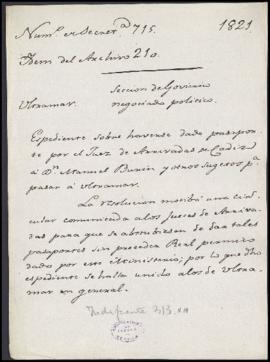 Num.º de Secret.ª 715.
1821
Idem del Archivo 210.
Seccion de Govierno
Ultramar.
negociado politico.
Expediente sobre haverse dado pasapor-
te por el Juez de Arrivadas de Cadiz
á D.n Manuel y otros sugetos p.a
pasar á Ultramar.
La resolucion motibó una cir-
cular comunicada a los Jueces de Arriva-
das para que se abstubiesen de dar tales
pasaportes sin preceder Real permiso
dado por este Ministerio; por lo que dho
expediente se halla unido a los de Ultra-
mar en general.
Indiferente